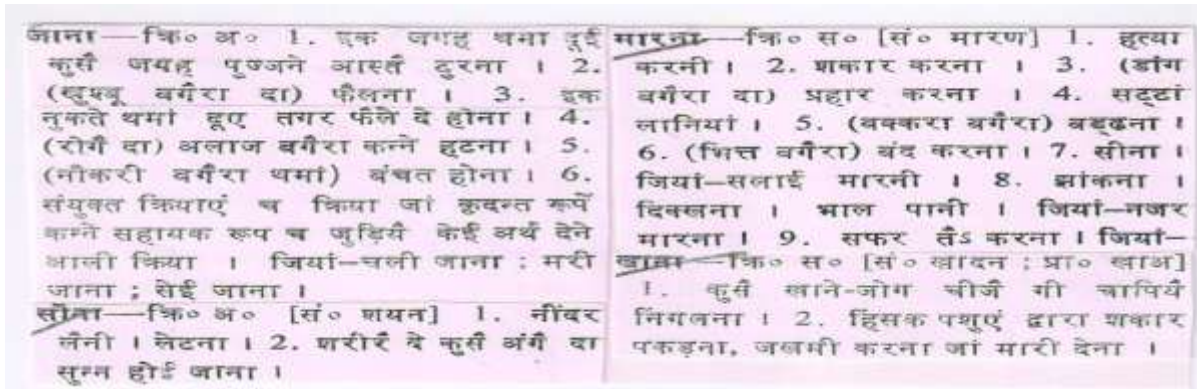 जाना—क्रि० अ० 1. इक जगह थमां दूई
कुसै जगह पुज्जने आस्तै टुरना । 2.
(खुश्बू बगैरा दा) फैलना । 3. इक
नुकते थमां दूए तगर फैले दे होना । 4.
(रोगै दा) अलाज बगैरा कन्ने हटना । 5.
(नौकरी बगैरा थमां) बंचत होना । 6.
संयुक्त क्रियाएं च क्रिया जां कृदन्त रूपें
कन्ने सहायक रूप च जुड़ियै केईं अर्थ देने
आली क्रिया । जियां—चली जाना ; मरी
जाना ; सेई जाना ।
सौना—क्रि० अ० [सं० शयन] 1. नींदर
लैनी । लेटना । 2. शरीरै दे कुसै अंगै दा
सुन्न होई जाना ।
मारना—क्रि० स० [सं० मारण] 1. हत्या
करनी । 2. शकार करना । 3. (डांग
बगैरा दा) प्रहार करना । 4. सट्टां
लानियां । 5. (बक्करा बगैरा) बड्ढना ।
6. (भित्त बगैरा) बंद करना । 7. सीना ।
जियां—सलाई मारनी । 8. झांकना ।
दिक्खना । भाल पानी । जियां—नजर
मारना । 9. सफर तैऽ करना । जियां—
खाना—क्रि० स० [सं० खादन ; प्रा० खाअ]
1. कुसै खाने-जोग चीजै गी चापियै
निगलना । 2. हिंसक पशुएं द्वारा शकार
पकड़ना, जखमी करना जां मारी देना ।